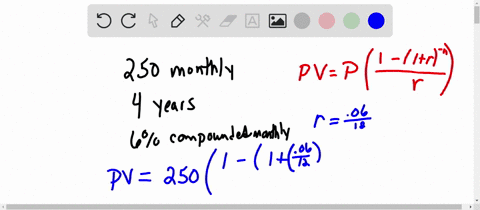 250 monthly
4 years
6% compounded monthly
PV = P ( (1 - (1+r)^-n) / r )
r = .06/12
PV = 250 ( 1 - ( 1 + ( .06/12 )